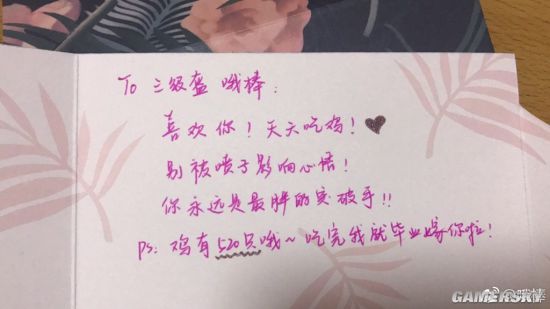 To 三级盔 哦棒：
喜欢你！天天吃鸡！
别被喷子影响心情！
你永远是最胖的突破手!!
ps：鸡有520只哦~吃完我就毕业嫁你啦！
@哦棒
GAMERSKY